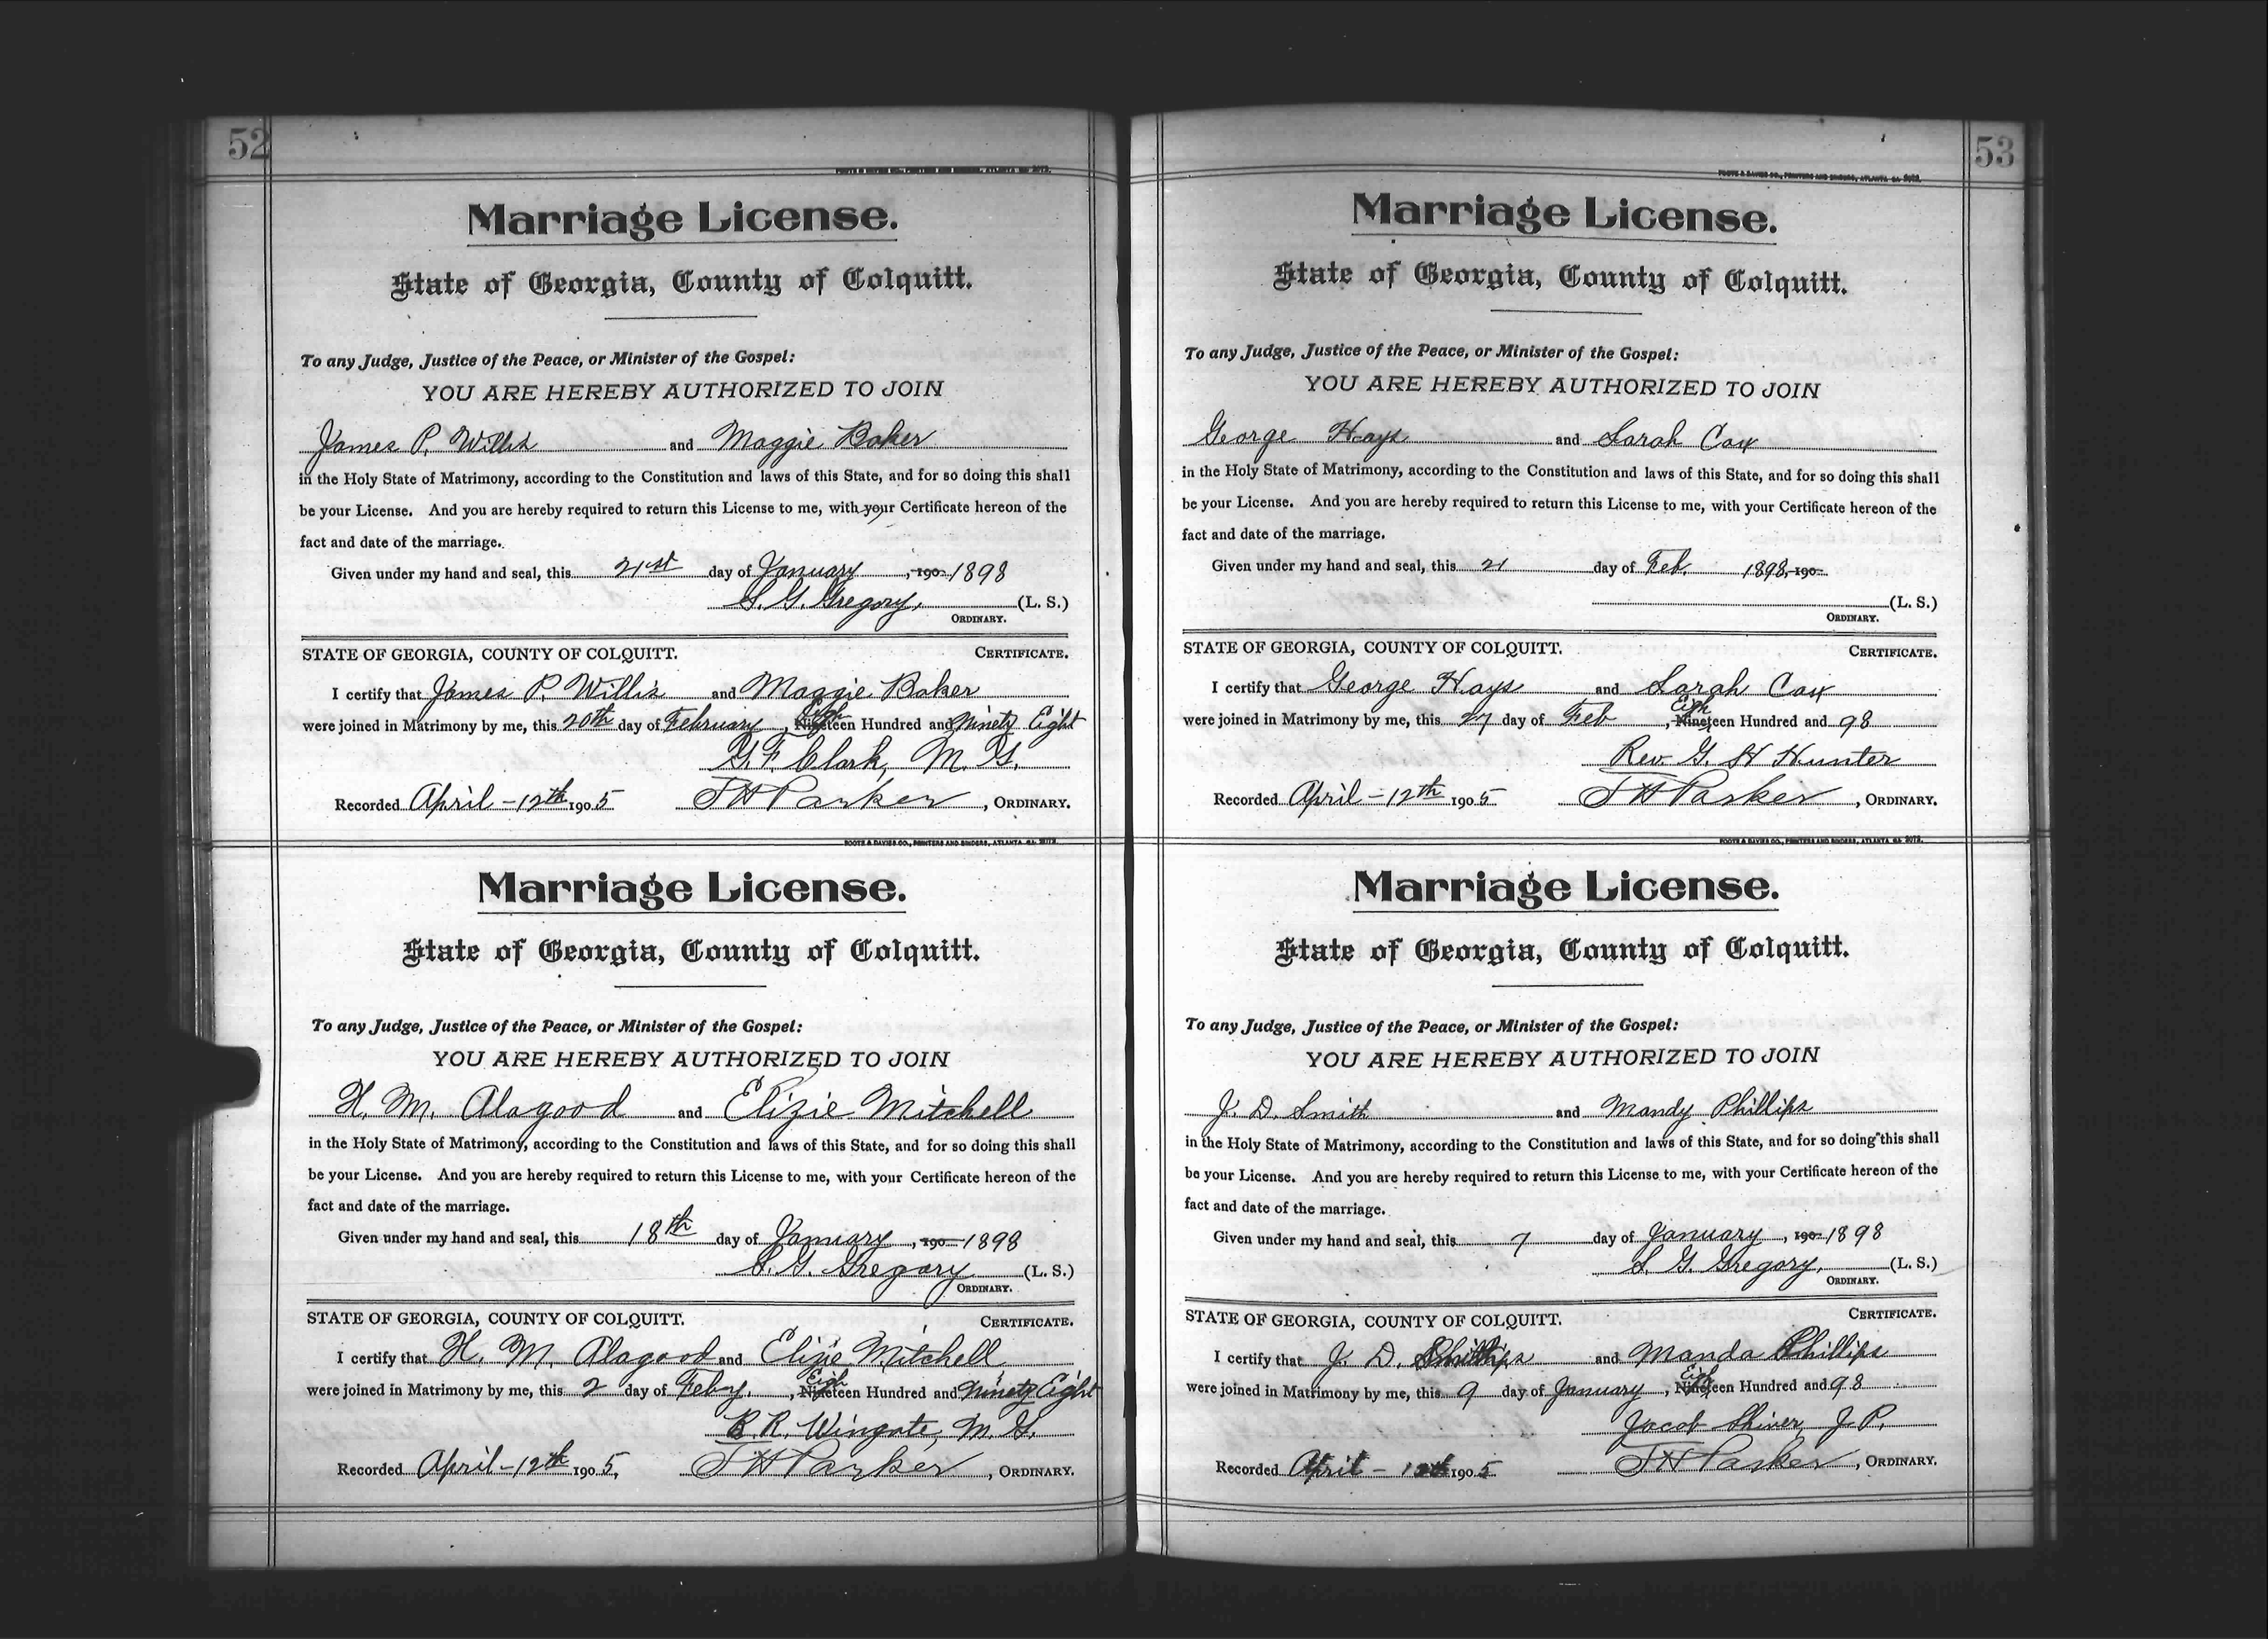 52
FOOTE & DAVIES CO., PRINTERS AND BINDERS, ATLANTA GA.
Marriage License.
State of Georgia, County of Colquitt.
To any Judge, Justice of the Peace, or Minister of the Gospel:
YOU ARE HEREBY AUTHORIZED TO JOIN
James P. Willis and Maggie Baker
in the Holy State of Matrimony, according to the Constitution and laws of this State, and for so doing this shall
be your License. And you are hereby required to return this License to me, with your Certificate hereon of the
fact and date of the marriage.
Given under my hand and seal, this 21st day of January, 190 1898
S. G. Gregory, (L. S.)
ORDINARY.
STATE OF GEORGIA, COUNTY OF COLQUITT. CERTIFICATE.
I certify that James P. Willis and Maggie Baker
were joined in Matrimony by me, this 20th day of February, Eigh Nineteen Hundred and Ninety Eight
G. F. Clark, M. G.
Recorded April - 12th 1905 J H Parker, ORDINARY.
FOOTE & DAVIES CO., PRINTERS AND BINDERS, ATLANTA GA.
Marriage License.
State of Georgia, County of Colquitt.
To any Judge, Justice of the Peace, or Minister of the Gospel:
YOU ARE HEREBY AUTHORIZED TO JOIN
H. M. Alagood and Elizie Mitchell
in the Holy State of Matrimony, according to the Constitution and laws of this State, and for so doing this shall
be your License. And you are hereby required to return this License to me, with your Certificate hereon of the
fact and date of the marriage.
Given under my hand and seal, this 18th day of January, 190 1898
S. G. Gregory (L. S.)
ORDINARY.
STATE OF GEORGIA, COUNTY OF COLQUITT. CERTIFICATE.
I certify that H. M. Alagood and Elizie Mitchell
were joined in Matrimony by me, this 2 day of Feby., Eigh Nineteen Hundred and Ninety Eight
B. R. Wingate, M. G.
Recorded April - 12th 1905, J H Parker, ORDINARY.
53
FOOTE & DAVIES CO., PRINTERS AND BINDERS, ATLANTA GA.
Marriage License.
State of Georgia, County of Colquitt.
To any Judge, Justice of the Peace, or Minister of the Gospel:
YOU ARE HEREBY AUTHORIZED TO JOIN
George Hays and Sarah Cox
in the Holy State of Matrimony, according to the Constitution and laws of this State, and for so doing this shall
be your License. And you are hereby required to return this License to me, with your Certificate hereon of the
fact and date of the marriage.
Given under my hand and seal, this 21 day of Feb. 1898, 190
(L. S.)
ORDINARY.
STATE OF GEORGIA, COUNTY OF COLQUITT. CERTIFICATE.
I certify that George Hays and Sarah Cox
were joined in Matrimony by me, this 27 day of Feb, Eigh Nineteen Hundred and 98
Rev. G. H Hunter
Recorded April - 12th 1905 J H Parker, ORDINARY.
FOOTE & DAVIES CO., PRINTERS AND BINDERS, ATLANTA GA.
Marriage License.
State of Georgia, County of Colquitt.
To any Judge, Justice of the Peace, or Minister of the Gospel:
YOU ARE HEREBY AUTHORIZED TO JOIN
J. D. Smith and Mandy Phillips
in the Holy State of Matrimony, according to the Constitution and laws of this State, and for so doing this shall
be your License. And you are hereby required to return this License to me, with your Certificate hereon of the
fact and date of the marriage.
Given under my hand and seal, this 7 day of January, 190 1898
S. G. Gregory, (L. S.)
ORDINARY.
STATE OF GEORGIA, COUNTY OF COLQUITT. CERTIFICATE.
I certify that J. D. and Manda Phillips
were joined in Matrimony by me, this 9 day of January, Eigh Nineteen Hundred and 98
Jacob Shiver, J. P.
Recorded April - 12th 1905 J H Parker, ORDINARY.